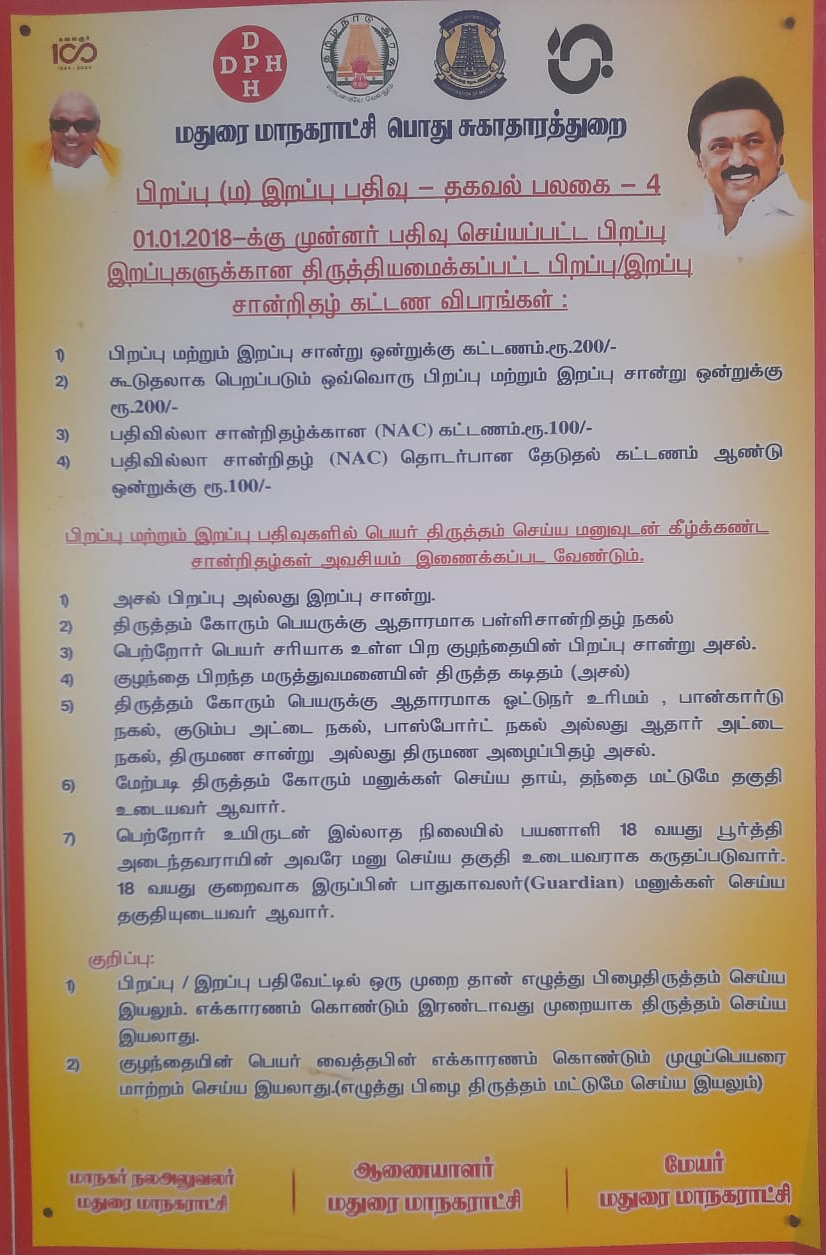 கலைஞர்
100
1924 - 2024
D
D P H
H
தமிழ்நாடு அரசு
வாய்மையே வெல்லும்
மதுரை மாநகராட்சி பொது சுகாதாரத்துறை
பிறப்பு (ம) இறப்பு பதிவு – தகவல் பலகை – 4
01.01.2018–க்கு முன்னர் பதிவு செய்யப்பட்ட பிறப்பு
இறப்புகளுக்கான திருத்தியமைக்கப்பட்ட பிறப்பு/இறப்பு
சான்றிதழ் கட்டண விபரங்கள் :
1) பிறப்பு மற்றும் இறப்பு சான்று ஒன்றுக்கு கட்டணம்.ரூ.200/-
2) கூடுதலாக பெறப்படும் ஒவ்வொரு பிறப்பு மற்றும் இறப்பு சான்று ஒன்றுக்கு
ரூ.200/-
3) பதிவில்லா சான்றிதழ்க்கான (NAC) கட்டணம்.ரூ.100/-
4) பதிவில்லா சான்றிதழ் (NAC) தொடர்பான தேடுதல் கட்டணம் ஆண்டு
ஒன்றுக்கு ரூ.100/-
பிறப்பு மற்றும் இறப்பு பதிவுகளில் பெயர் திருத்தம் செய்ய மனுவுடன் கீழ்க்கண்ட
சான்றிதழ்கள் அவசியம் இணைக்கப்பட வேண்டும்.
1) அசல் பிறப்பு அல்லது இறப்பு சான்று.
2) திருத்தம் கோரும் பெயருக்கு ஆதாரமாக பள்ளிசான்றிதழ் நகல்
3) பெற்றோர் பெயர் சரியாக உள்ள பிற குழந்தையின் பிறப்பு சான்று அசல்.
4) குழந்தை பிறந்த மருத்துவமனையின் திருத்த கடிதம் (அசல்)
5) திருத்தம் கோரும் பெயருக்கு ஆதாரமாக ஓட்டுநர் உரிமம் , பான்கார்டு
நகல், குடும்ப அட்டை நகல், பாஸ்போர்ட் நகல் அல்லது ஆதார் அட்டை
நகல், திருமண சான்று அல்லது திருமண அழைப்பிதழ் அசல்.
6) மேற்படி திருத்தம் கோரும் மனுக்கள் செய்ய தாய், தந்தை மட்டுமே தகுதி
உடையவர் ஆவார்.
7) பெற்றோர் உயிருடன் இல்லாத நிலையில் பயனாளி 18 வயது பூர்த்தி
அடைந்தவராயின் அவரே மனு செய்ய தகுதி உடையவராக கருதப்படுவார்.
18 வயது குறைவாக இருப்பின் பாதுகாவலர்(Guardian) மனுக்கள் செய்ய
தகுதியுடையவர் ஆவார்.
குறிப்பு:
1) பிறப்பு / இறப்பு பதிவேட்டில் ஒரு முறை தான் எழுத்து பிழைதிருத்தம் செய்ய
இயலும். எக்காரணம் கொண்டும் இரண்டாவது முறையாக திருத்தம் செய்ய
இயலாது.
2) குழந்தையின் பெயர் வைத்தபின் எக்காரணம் கொண்டும் முழுப்பெயரை
மாற்றம் செய்ய இயலாது.(எழுத்து பிழை திருத்தம் மட்டுமே செய்ய இயலும்)
மாநகர் நலஅலுவலர்
மதுரை மாநகராட்சி
ஆணையாளர்
மதுரை மாநகராட்சி
மேயர்
மதுரை மாநகராட்சி